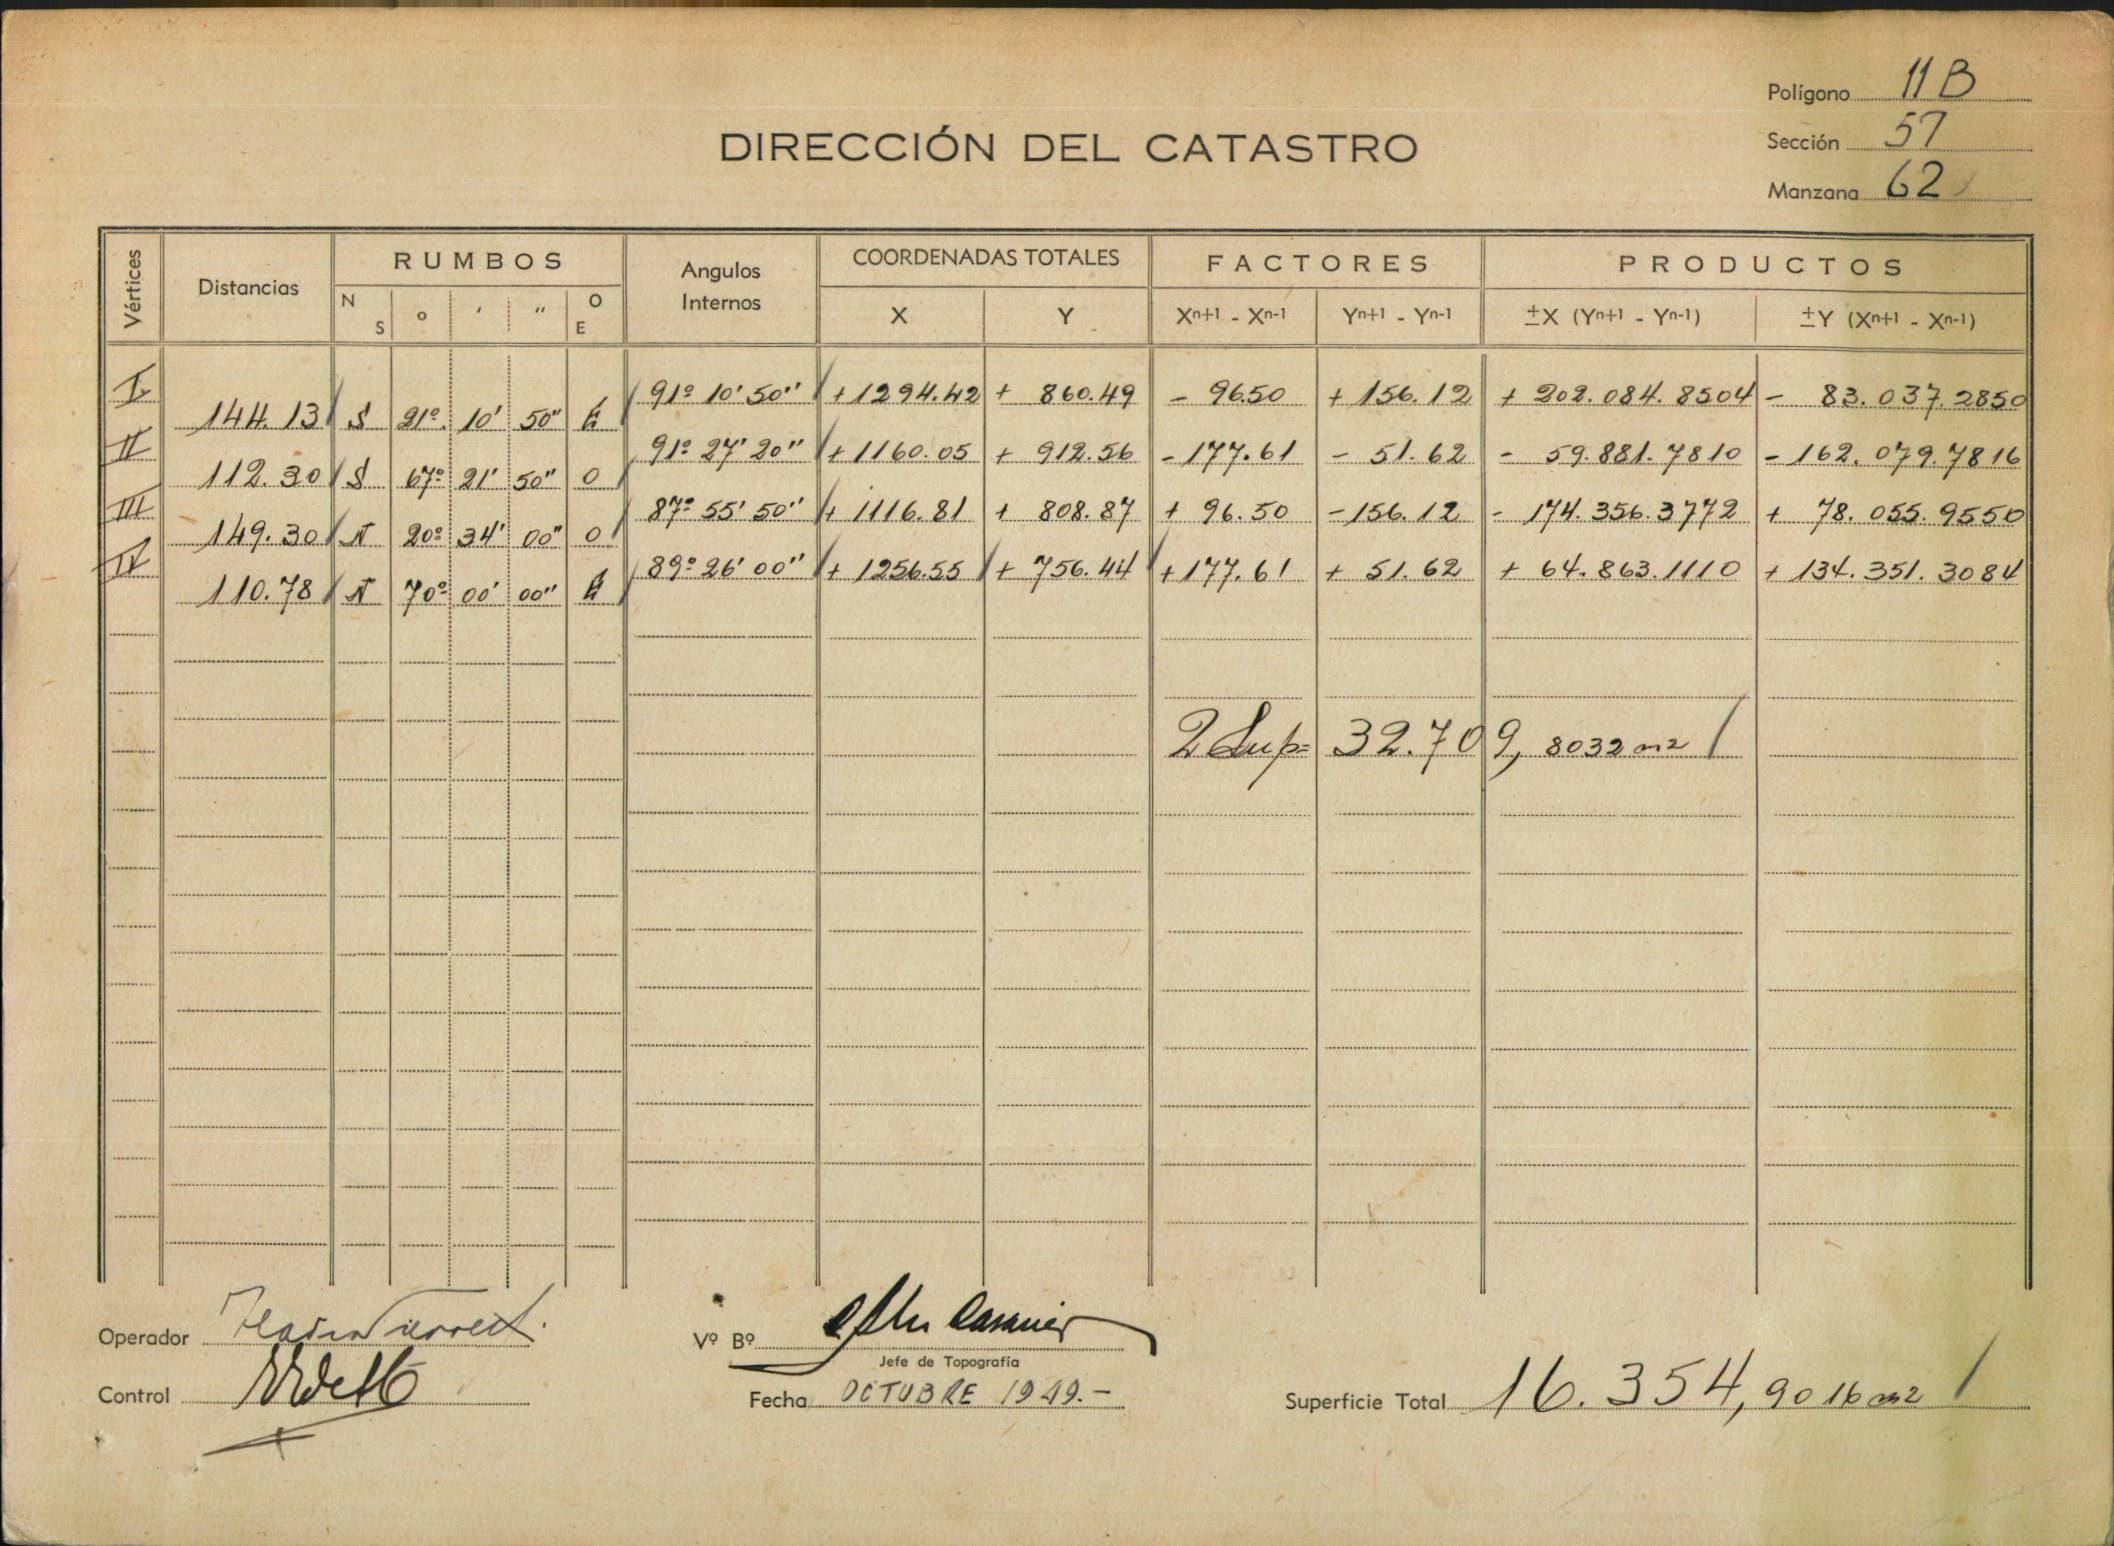 Polígono 11 B
DIRECCIÓN DEL CATASTRO
Sección 57
Manzana 62
Vértices Distancias RUMBOS Angulos Internos COORDENADAS TOTALES FACTORES PRODUCTOS
N S º ′ ″ O E X Y Xⁿ⁺¹ - Xⁿ⁻¹ Yⁿ⁺¹ - Yⁿ⁻¹ ±X (Yⁿ⁺¹ - Yⁿ⁻¹) ±Y (Xⁿ⁺¹ - Xⁿ⁻¹)
I 91º 10' 50'' + 1294.42 + 860.49 - 96.50 + 156.12 + 202.084.8504 - 83.037.2850
144.13 S 21º 10' 50'' E
II 91º 27' 20'' + 1160.05 + 912.56 - 177.61 - 51.62 - 59.881.7810 - 162.079.7816
112.30 S 67º 21' 50'' O
III 87º 55' 50'' + 1116.81 + 808.87 + 96.50 - 156.12 - 174.356.3772 + 78.055.9550
149.30 N 20º 34' 00'' O
IV 89º 26' 00'' + 1256.55 + 756.44 + 177.61 + 51.62 + 64.863.1110 + 134.351.3084
110.78 N 70º 00' 00'' E
2 Sup= 32.709, 8032 m2
Operador
Vº Bº
Jefe de Topografía
Control
Fecha OCTUBRE 1949.-
Superficie Total 16.354, 9016 m2